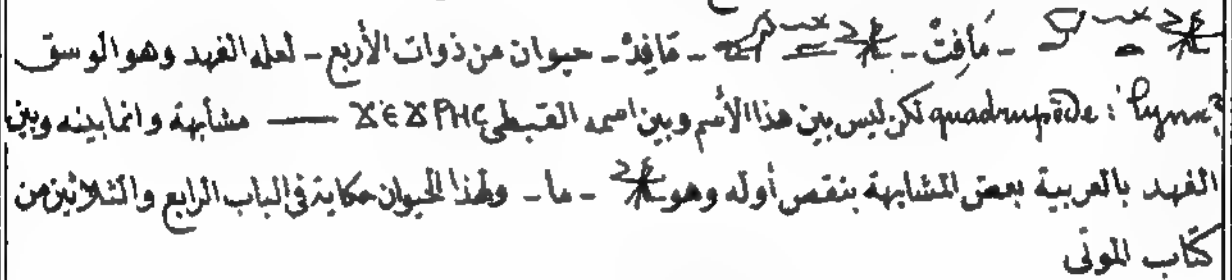 مَافِتْ - مَافِدْ - حيوان من ذوات الأربع - لعله الفهد وهو الوسق
quadrupède : lynx? لكن ليس بين هذا الأسم وبين اسمه القبطى ϪⲈϪⲢⲎⲤ — مشابهة وانما بينه وبين
الفهد بالعربية بعض المشابهة بنقص أوله وهو - ما - ولهذا الحيوان حكاية فى الباب الرابع والثلاثين من
كتاب الموتى